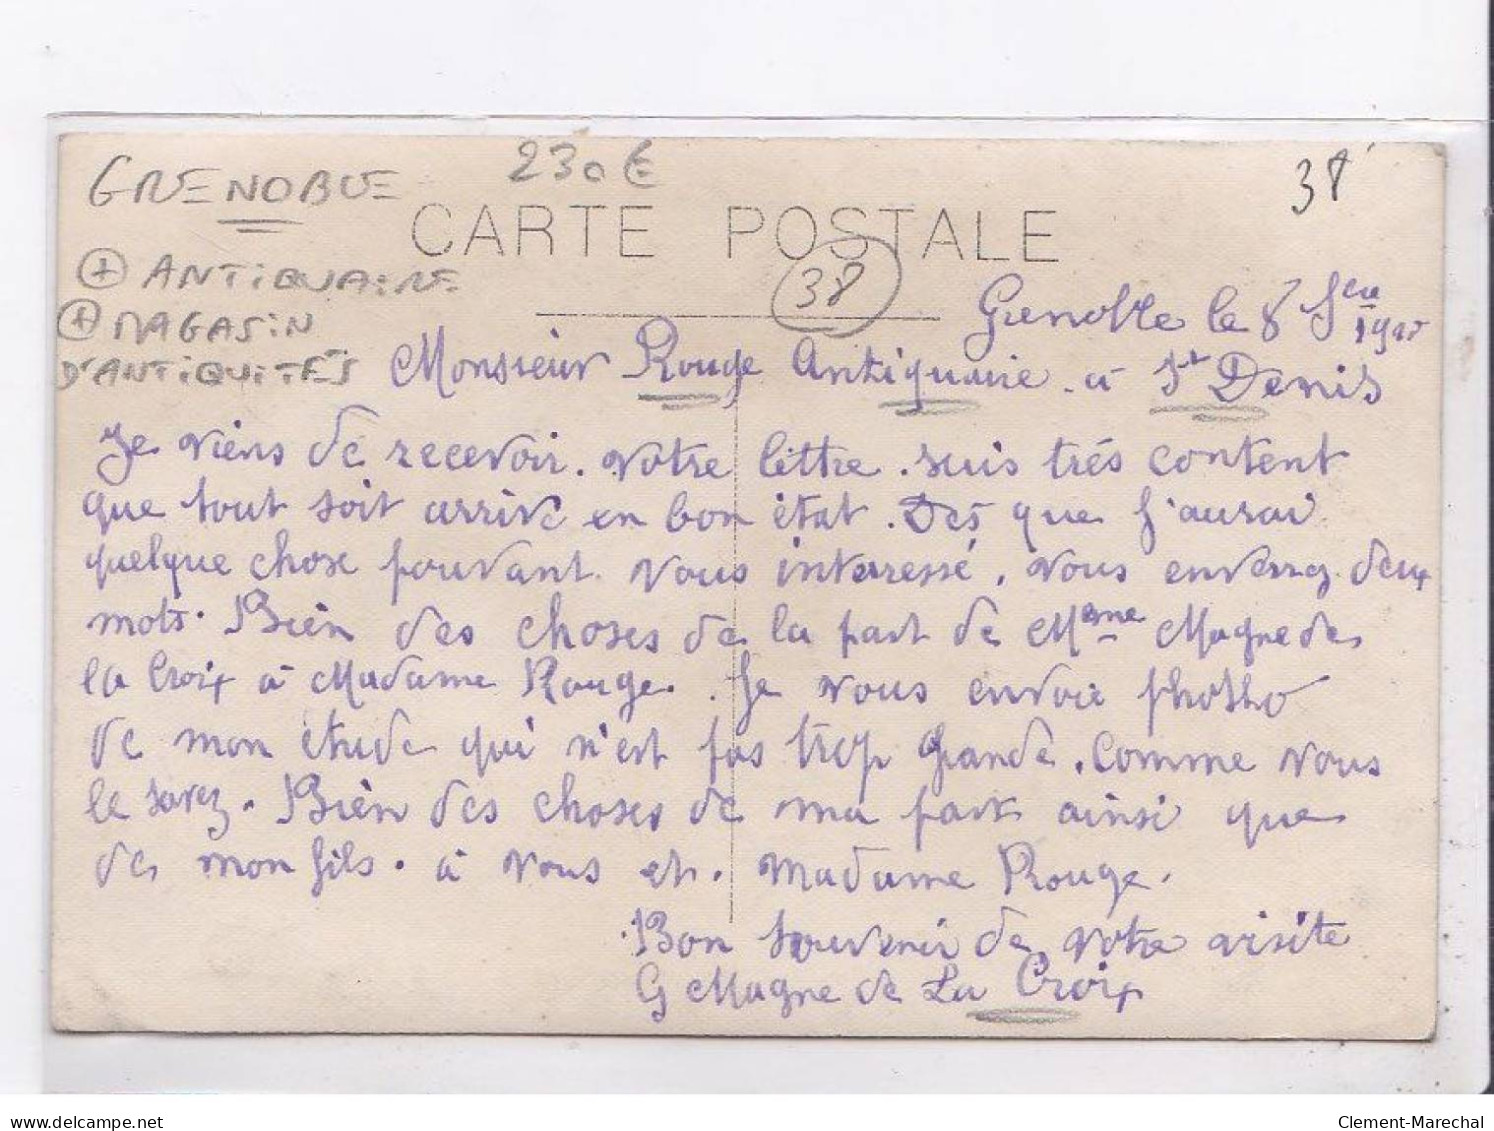 GRENOBLE
230€
38
CARTE POSTALE
+ ANTIQUAIRE
38
+ MAGASIN
D'ANTIQUITÉS
Grenoble le 8
Monsieur Rouge Antiquaire à St Denis
Je viens de recevoir. votre lettre. suis trés content
que tout soit arrivé en bon état. Des que J'aurai
quelque chose pouvant vous interressé, vous enverrez deux
mots. Bien des choses de la part de Meme Magne de
la Croix à Madame Rouge. Je vous envoie photho
de mon étude qui n'est pas trop Grande. comme vous
le savez. Bien des choses de ma part ainsi que
de mon fils. à vous et. Madame Rouge.
Bon souvenir de votre visite
G Magne de La Croix
www.delcampe.net
Clement-Marechal